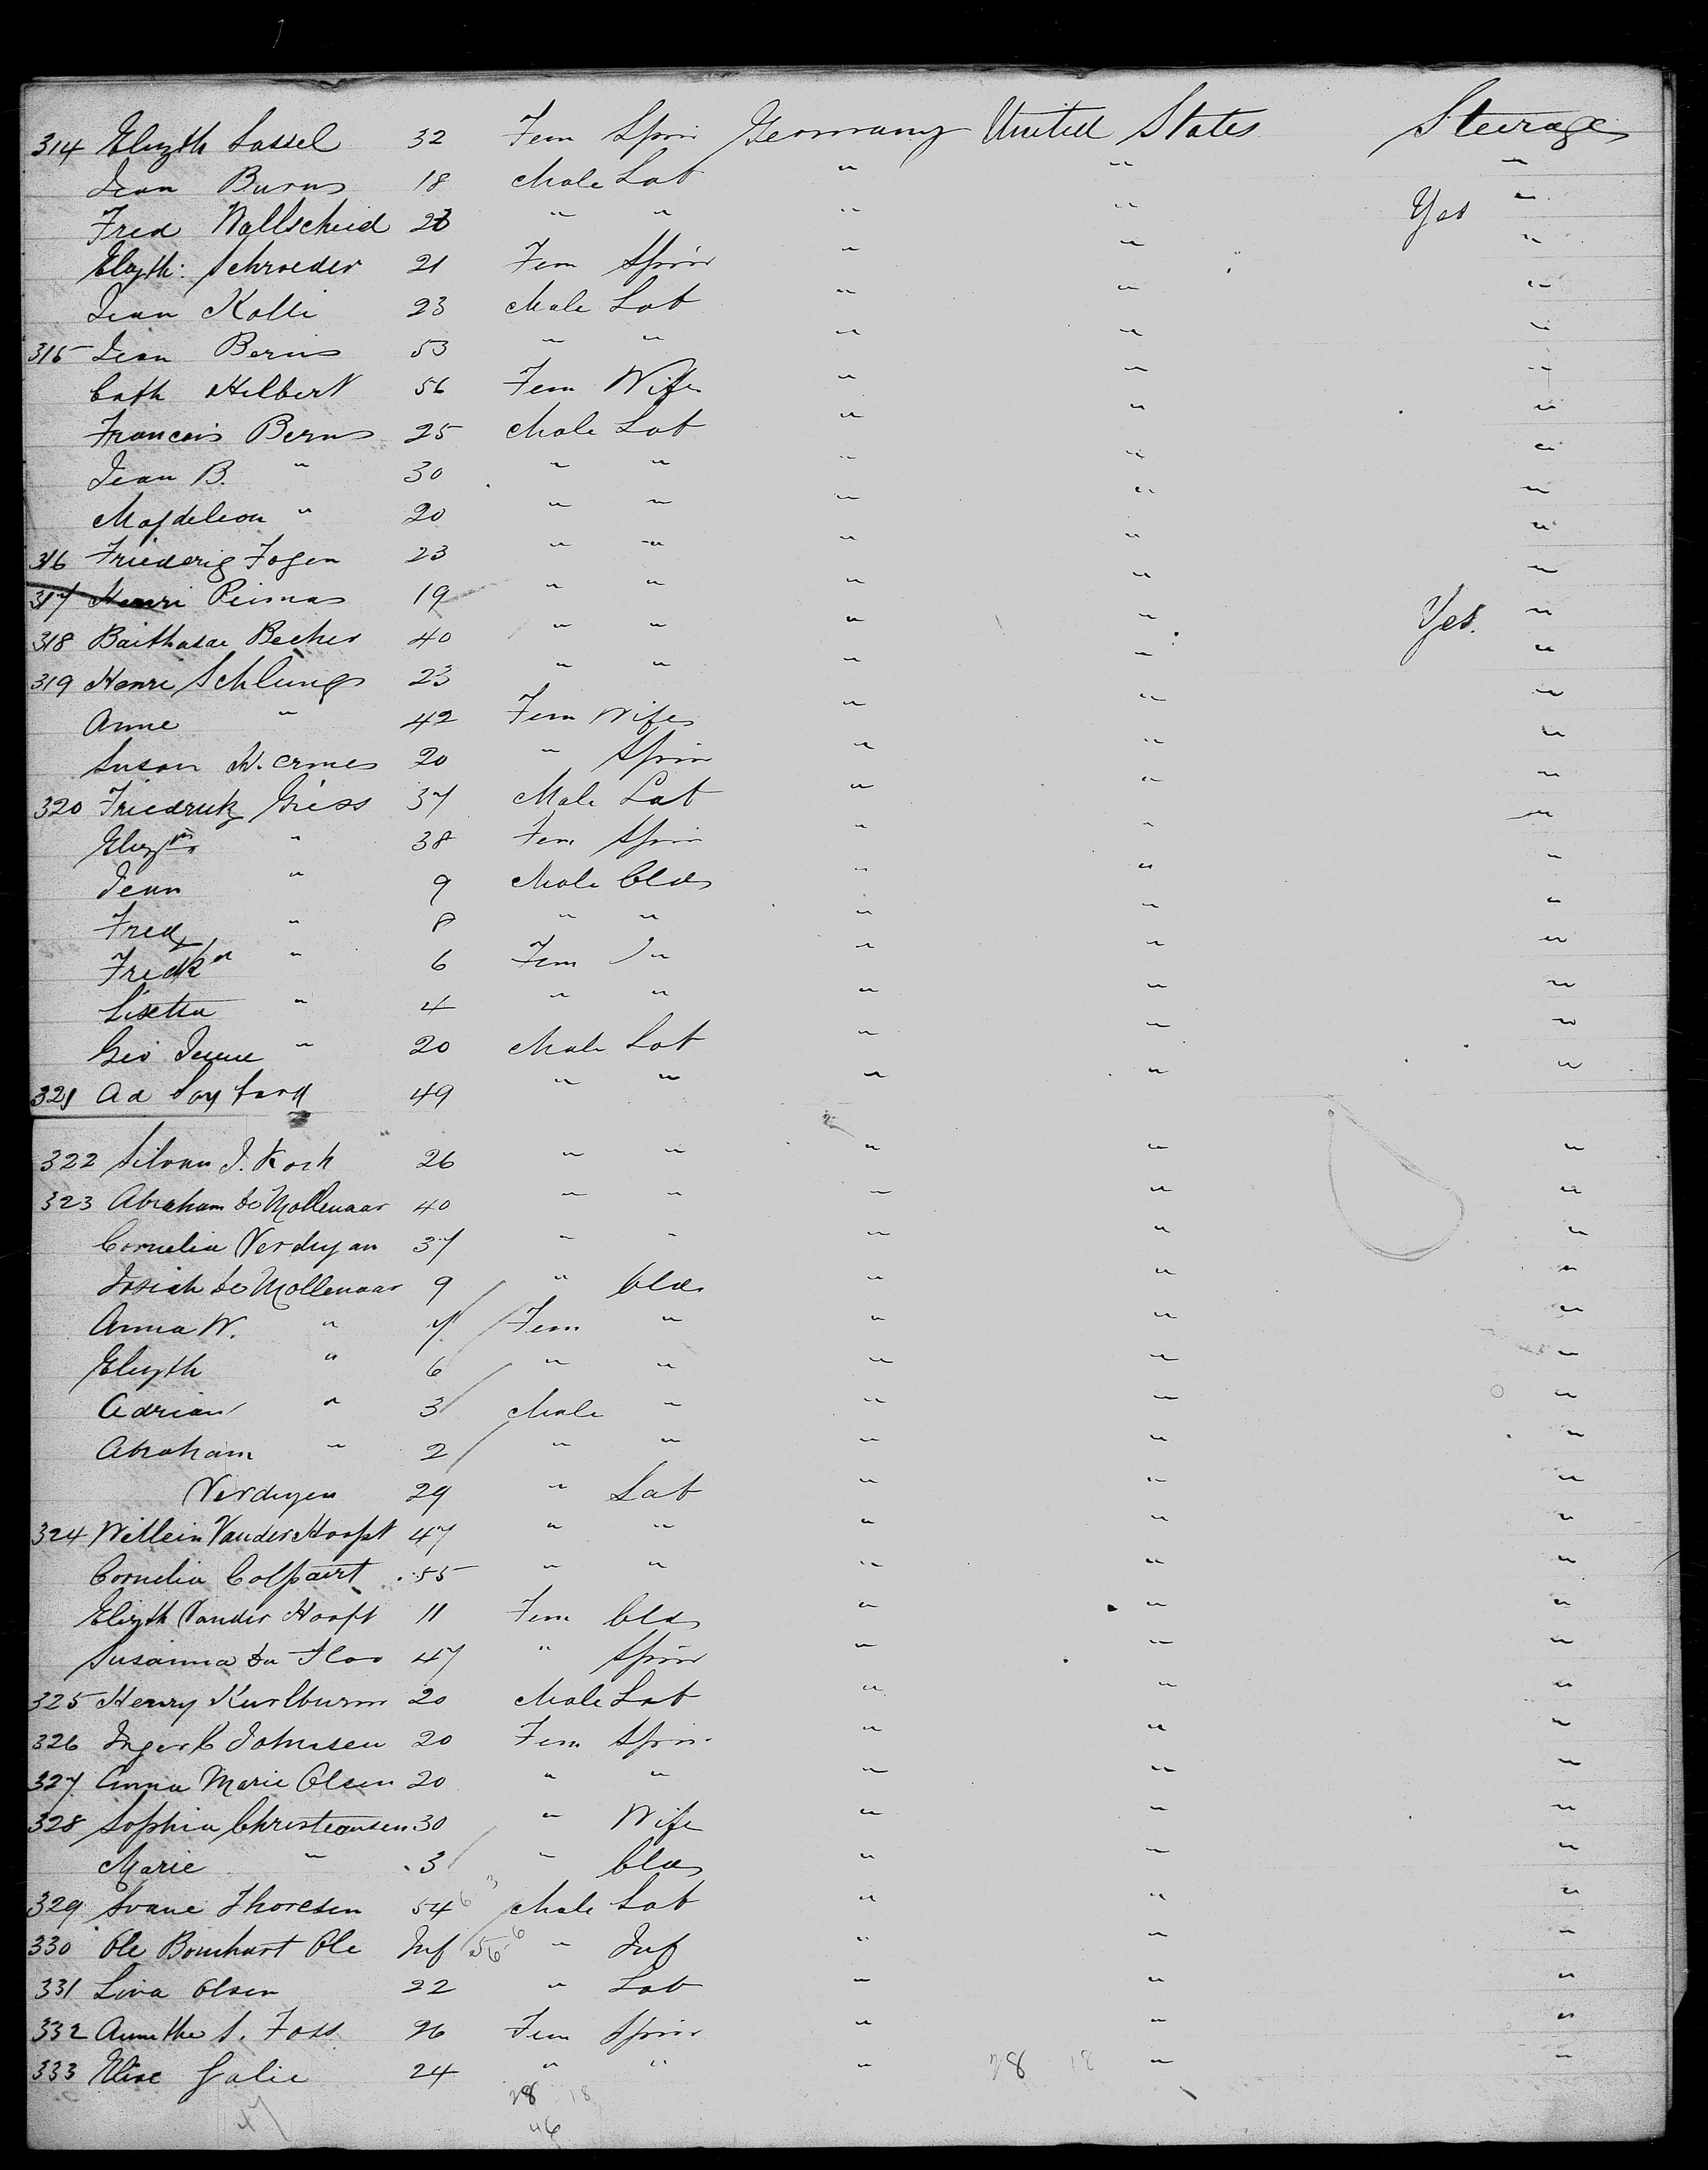 314 Elizth Sassel 32 Fem Spin Germany United States Steerage
Jean Burns 18 Male Lab " " "
Fred Wallscheid 23 " " " " Yes "
Elizth Schroeder 21 Fem Spin " " "
Jean Kolli 23 Male Lab " " "
315 Jean Berns 53 " " " " "
Cath Hilbert 56 Fem Wife " " "
Francois Berns 25 Male Lab " " "
Jean B. " 30 " " " " "
Magdeleon " 20 " " " " "
316 Friederig Fogen 23 " " " " "
317 Henri Reimas 19 " " " " "
318 Balthasar Becker 40 " " " " Yes. "
319 Henri Schlungs 23 " " " " "
Anne " 42 Fem Wife " " "
Susan Hermes 20 " Spin " " "
320 Friedrick Giess 37 Male Lab " " "
Elizth " 38 Fem Spin " " "
Jean " 9 Male Cld " " "
Fred " 8 " " " " "
Fredk " 6 Fem " " " "
Lisetta " 4 " " " " "
Geo " 20 Male Lab " " "
321 Ad 49 " " " " "
322 Silvan J. Koch 26 " " " " "
323 Abraham de Mollenaar 40 " " " " "
Cornelia Verduyan 37 " " " " "
Josiah de Mollenaar 9 " Cld " " "
Anna W. " 7 Fem " " " "
Elizth " 6 " " " " "
Adrian " 3 Male " " " "
Abraham " 2 " " " " "
Verduyen 29 " Lab " " "
324 Willein Vander Hooft 47 " " " " "
Cornelia Colpaert 55 " " " " "
Elizth Vander Hooft 11 Fem Cld " " "
Susanna 47 " Spin " " "
325 Henry Kurlburm 20 Male Lab " " "
326 Inger C Johnsen 20 Fem Spin " " "
327 Anna Marie Olsen 20 " " " " "
328 Sophia Christiansen 30 " Wife " " "
Marie " 3 " Cld " " "
329 Svane Thoresen 54 Male Lab " " "
330 Ole Bernhart Ole Inf " Inf " " "
331 Lina Olsen 22 " Lab " " "
332 Annethe S. Foss 26 Fem Spin " " "
333 Elise Galie 24 " " " 28 18 " "
28 18
47 46